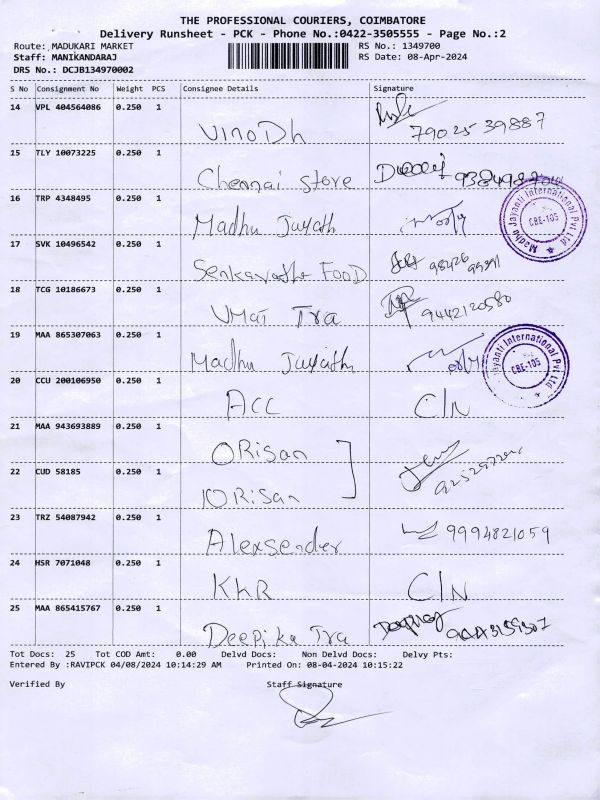 THE PROFESSIONAL COURIERS, COIMBATORE
Delivery Runsheet - PCK - Phone No.:0422-3505555 - Page No.:2
Route: MADUKARI MARKET RS No.: 1349700
Staff: MANIKANDARAJ RS Date: 08-Apr-2024
DRS No.: DCJB134970002
S No Consignment No Weight PCS Consignee Details Signature
14 VPL 404564086 0.250 1 VINODh 79025 39887
15 TLY 10073225 0.250 1 Chennai store
16 TRP 4348495 0.250 1 Madhu Jayath
Madhu Jayanti International Pvt Ltd CBE-105
17 SVK 10496542 0.250 1 FOOD
18 TCG 10186673 0.250 1 UMAI Tra 9442120580
19 MAA 865307063 0.250 1 Madhu Jayath
Jayanti International Pvt Ltd CBE-105
20 CCU 200106950 0.250 1 ACC C/N
21 MAA 943693889 0.250 1 ORisan
22 CUD 58185 0.250 1 ORisan
23 TRZ 54087942 0.250 1 Alexsender 9994821059
24 HSR 7071048 0.250 1 KhR C/N
25 MAA 865415767 0.250 1 Deepika Tra
Tot Docs: 25 Tot COD Amt: 0.00 Delvd Docs: Non Delvd Docs: Delvy Pts:
Entered By :RAVIPCK 04/08/2024 10:14:29 AM Printed On: 08-04-2024 10:15:22
Verified By Staff Signature